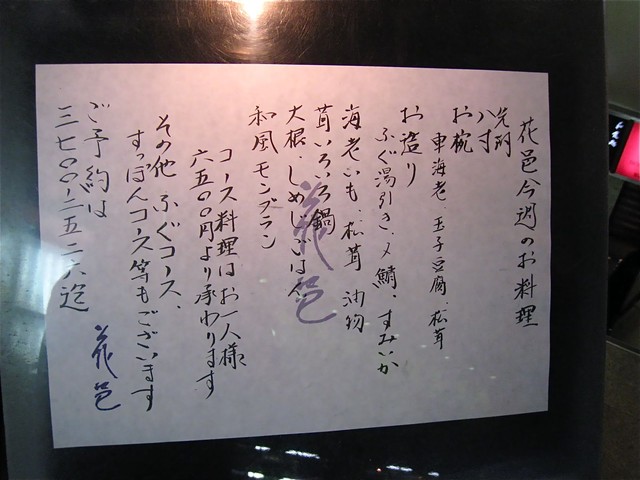 花邑今週のお料理
先附
八寸
お椀
車海老、玉子豆腐、松茸
お造り
ふぐ湯引き、〆鯖、すみいか
海老いも、松茸 油物
茸いろいろ鍋
大根、しめじごはん
和風モンブラン
コース料理はお一人様
六五〇〇円より承わります
その他 ふぐコース、
すっぽんコース等もございます
ご予約は
三七〇〇-二五二六迄
花邑
花邑